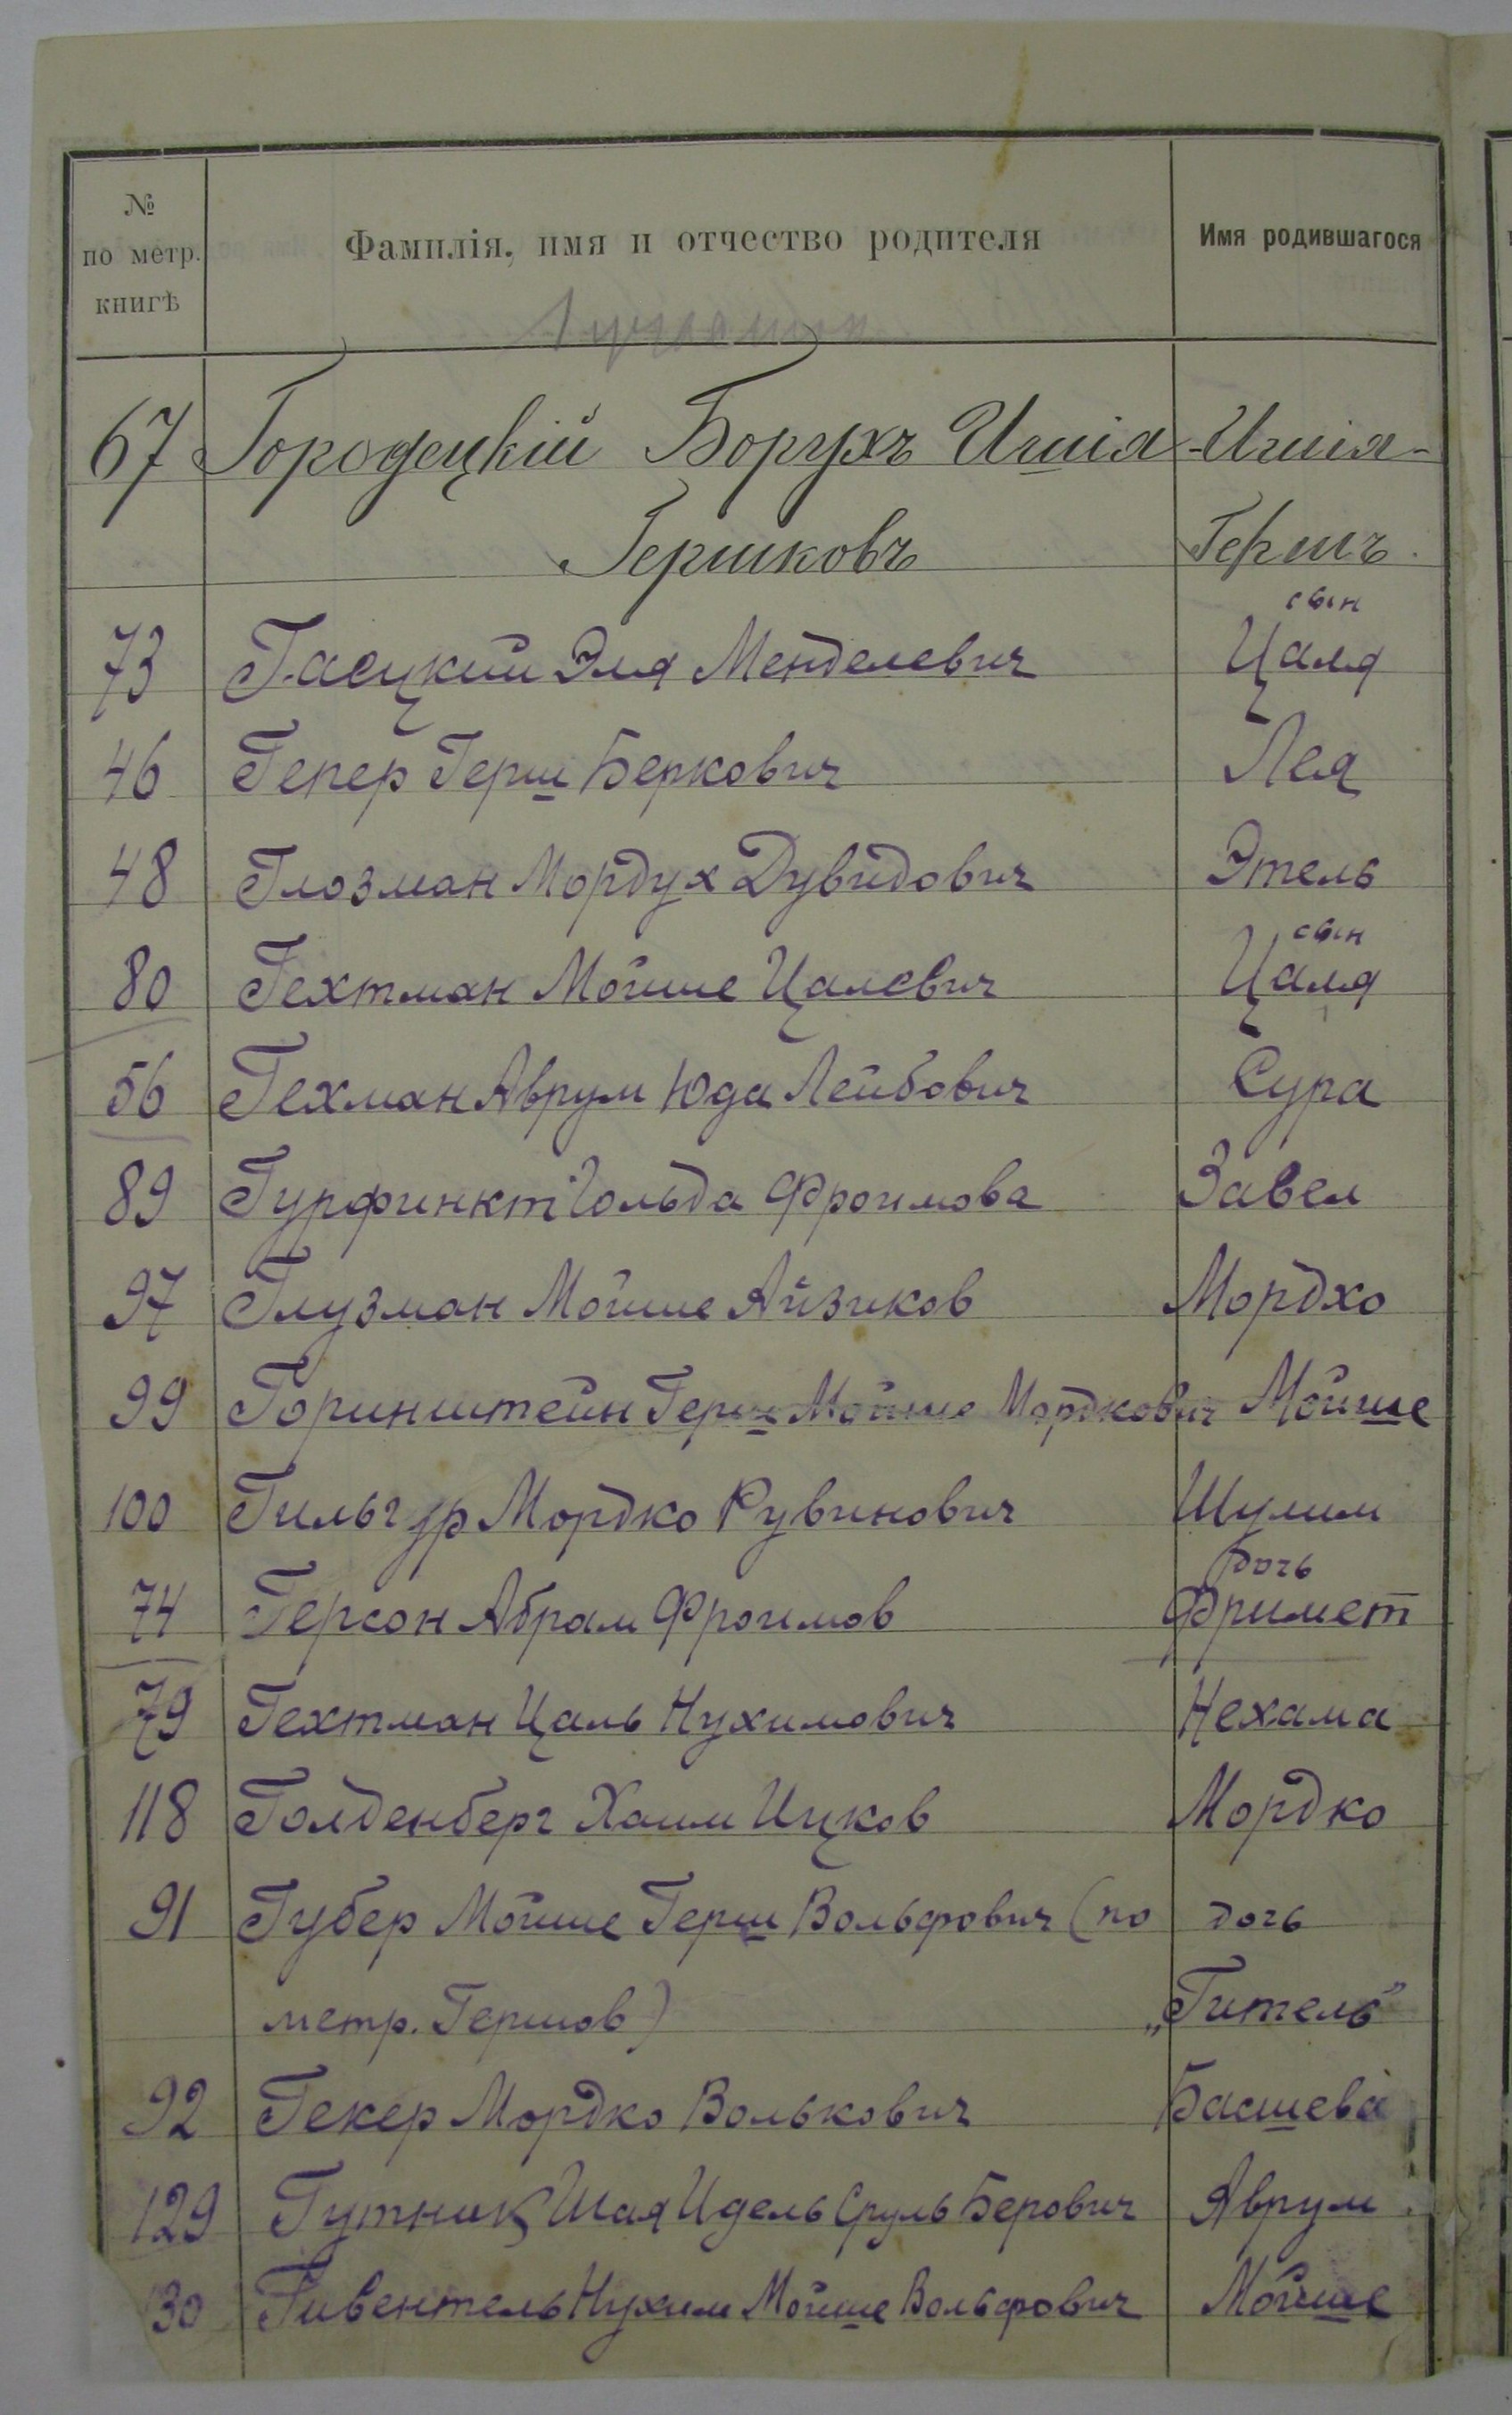 №
по метр.
книгѣ
Фамилія, имя и отчество родителя
Имя родившагося
67 Городецкій Борухъ Ишія Ишія-
Гершковъ Гершъ.
сын
73 Гасцкий Эля Менделевич Цаля
46 Гекер Герш Беркович Лея
48 Глозман Мордух Дувидович Этель
сын
80 Гехтман Мойше Цалевич Цаля
56 Гехман Аврум Юда Лейбович Сура
89 Гурфинкт Гольда Фроимова Завел
97 Глузман Мойше Айзиков Мордхо
99 Горинштейн Герш Мойше Мордкович Мойше
100 Гильгур Мордко Рувинович Шулим
дочь
74 Герсон Абрам Фроимов Фримет
79 Гехтман Цаль Нухимович Нехама
118 Голденберг Хаим Ицков Мордко
91 Губер Мойше Герш Вольфович (по дочь
метр. Гершов) „Гитель"
92 Гекер Мордко Волькович Басшева
129 Гутник Шая Идель Сруль Берович Аврум
130 Гивентель Нухим Мойше Вольфович Мойше